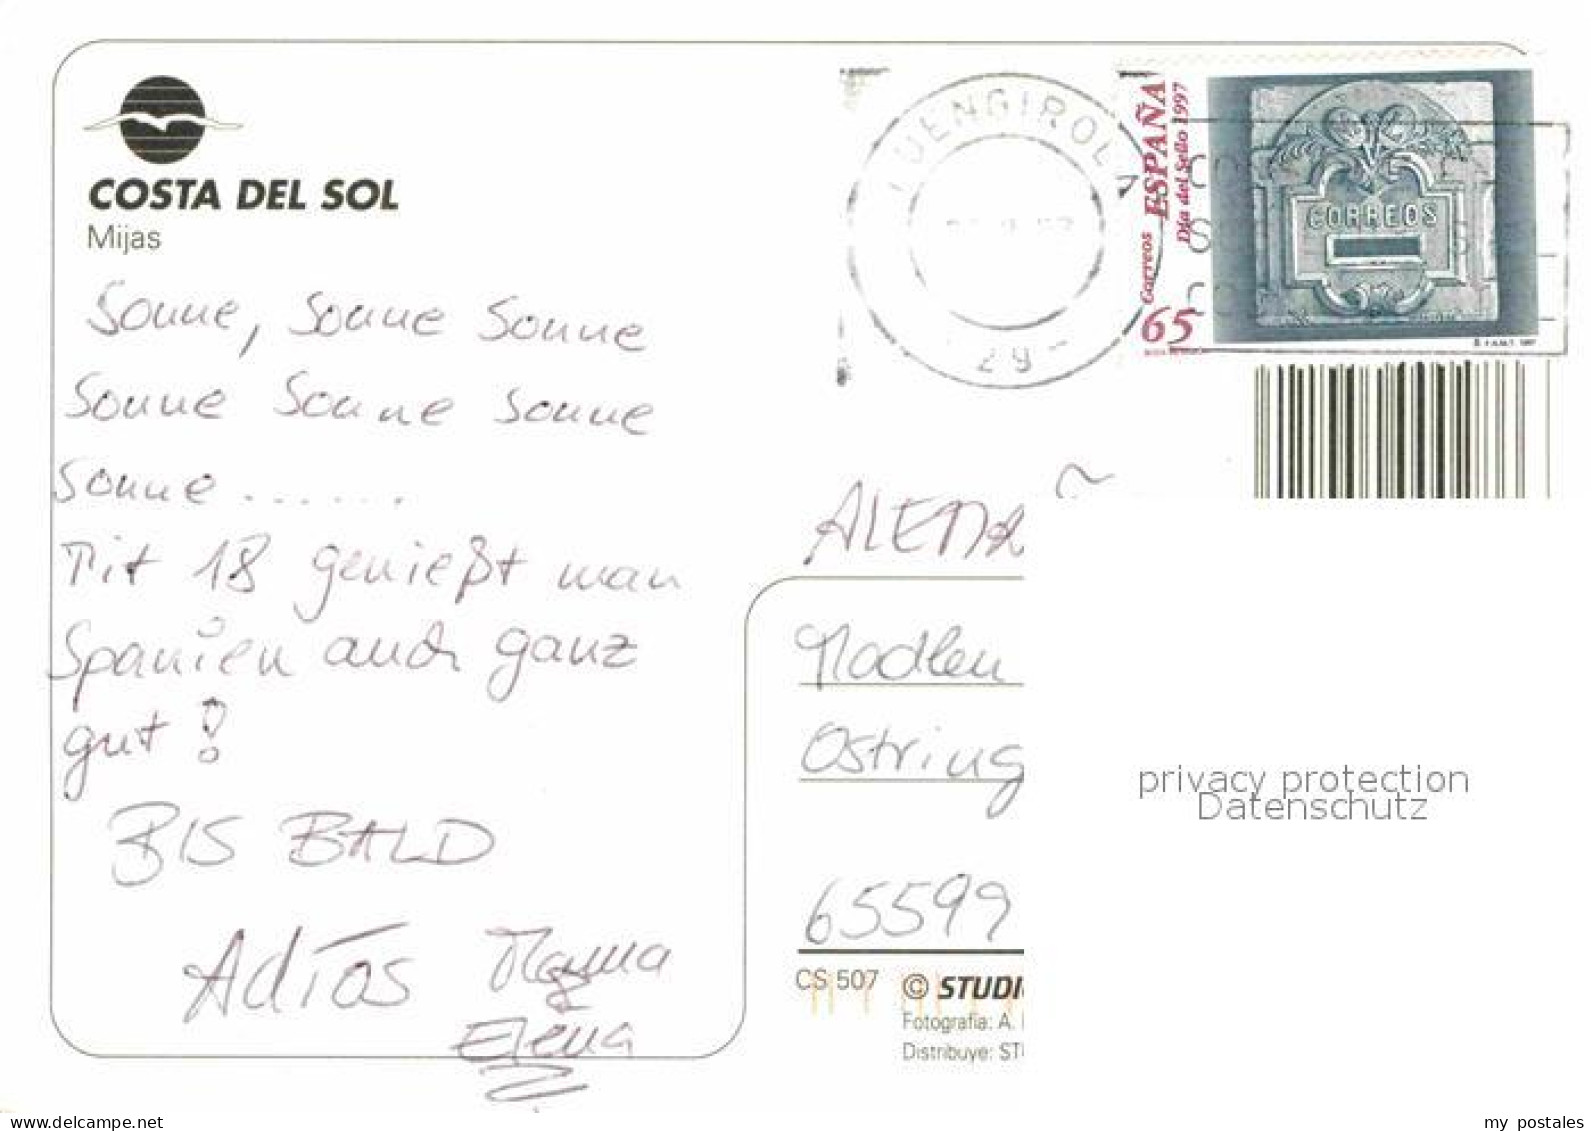 COSTA DEL SOL
Mijas
Sonne, Sonne Sonne
Sonne Sonne Sonne
Sonne ......
Mit 18 genießt man
Spanien auch ganz
gut !
BIS BALD
Adios Mama
Elena
FUENGIROLA
29-
Correos ESPAÑA
Día del Sello 1997
65
CORREOS
ALEMA
Madlen
Ostring
65599
privacy protection
Datenschutz
CS 507
© STUDI
Fotografia: A.
Distribuye: ST
www.delcampe.net
my_postales